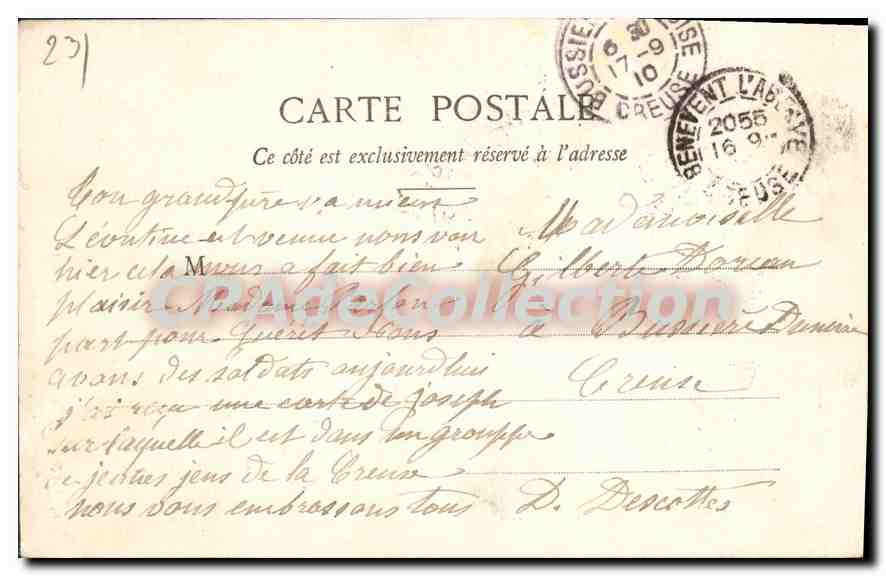 23)
BUSSIE OISE
6 30
17-9
10
CREUSE
BENEVENT L'ABBAYE
2055
16 9
CREUSE
CARTE POSTALE
Ce côté est exclusivement réservé à l'adresse
Ton grand père va mieux
Léontine est venue nous voir
hier cela M nous a fait bien
plaisir Mademoiselle
part pour Guéret Nous
avons des soldats aujourdhui
j'ai reçu une carte de joseph
sur laquelle il est dans un grouppe
de jeunes jens de la Creuse
nous vous embrassons tous
Mademoiselle
Gilberte
à Bussière Dunoise
Creuse
D. Descottes
CPAdeCollection